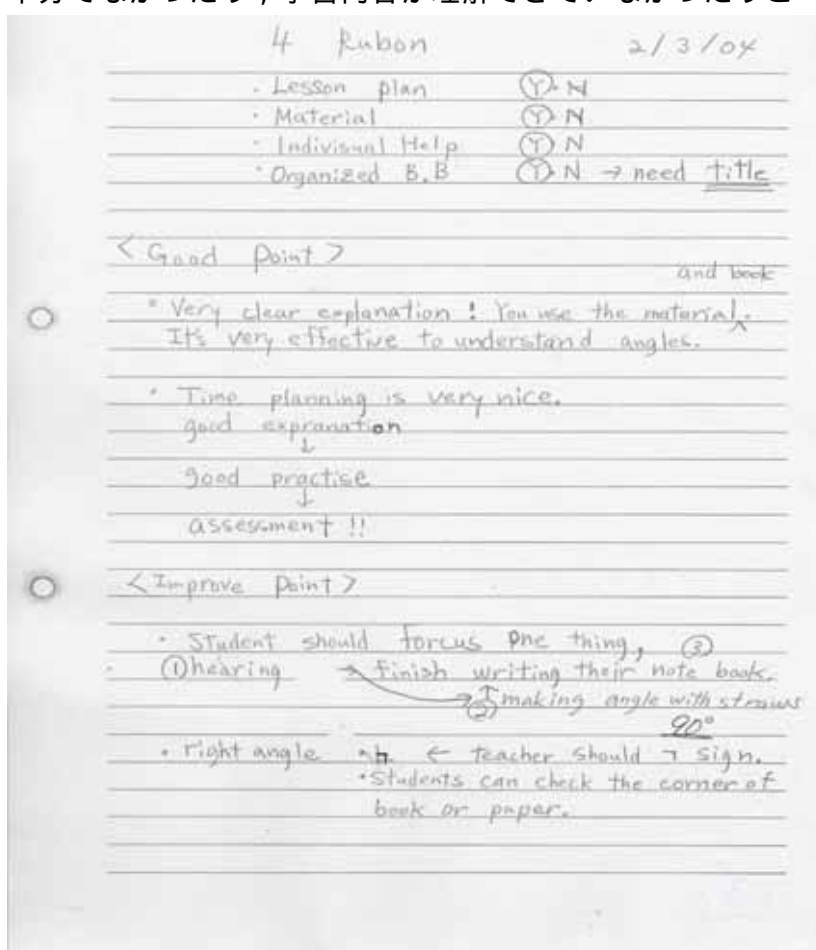 4 Rubon 2/3/04
・Lesson plan Ⓨ・N
・Material Ⓨ・N
・Indivisual Help Ⓨ N
・Organized B.B Ⓨ・N → need title
<Good Point>
and book
・Very clear explanation! You use the material^.
It's very effective to understand angles.
・Time planning is very nice.
good expranation
↓
good practise
↓
assessment!!
<Improve Point>
・Student should forcus one thing, ③
①hearing → finish writing their note book.
② ↑ making angle with straws
90°
・right angle ← teacher should ¬ sign.
・Students can check the corner of
book or paper.